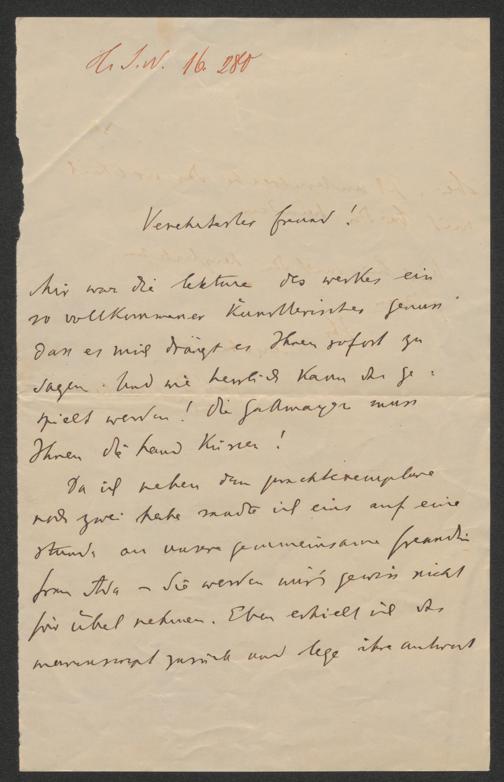 H. I. N. 16. 280
Verehrtester freund!
Mir war die lektüre des werkes ein
so vollkommener künstlerischer genuss
dass es mich drängt es Ihnen sofort zu
sagen. Und wie herrlich kann das ge=
spielt werden! die Gallmayer muss
Ihnen die hand küssen!
Da ich neben dem prachtexemplare
noch zwei habe sandte ich eins auf eine
stunde an unsere gemeinsame freundin
frau Ada – Sie werden mir's gewiss nicht
für übel nehmen. Eben erhielt ich das
manuscript zurück und lege ihre antwort